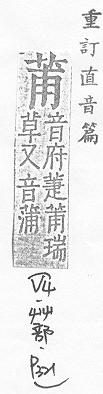 重訂直音篇
莆
音府萐莆瑞
草又音蒲
V4·艸部·P321